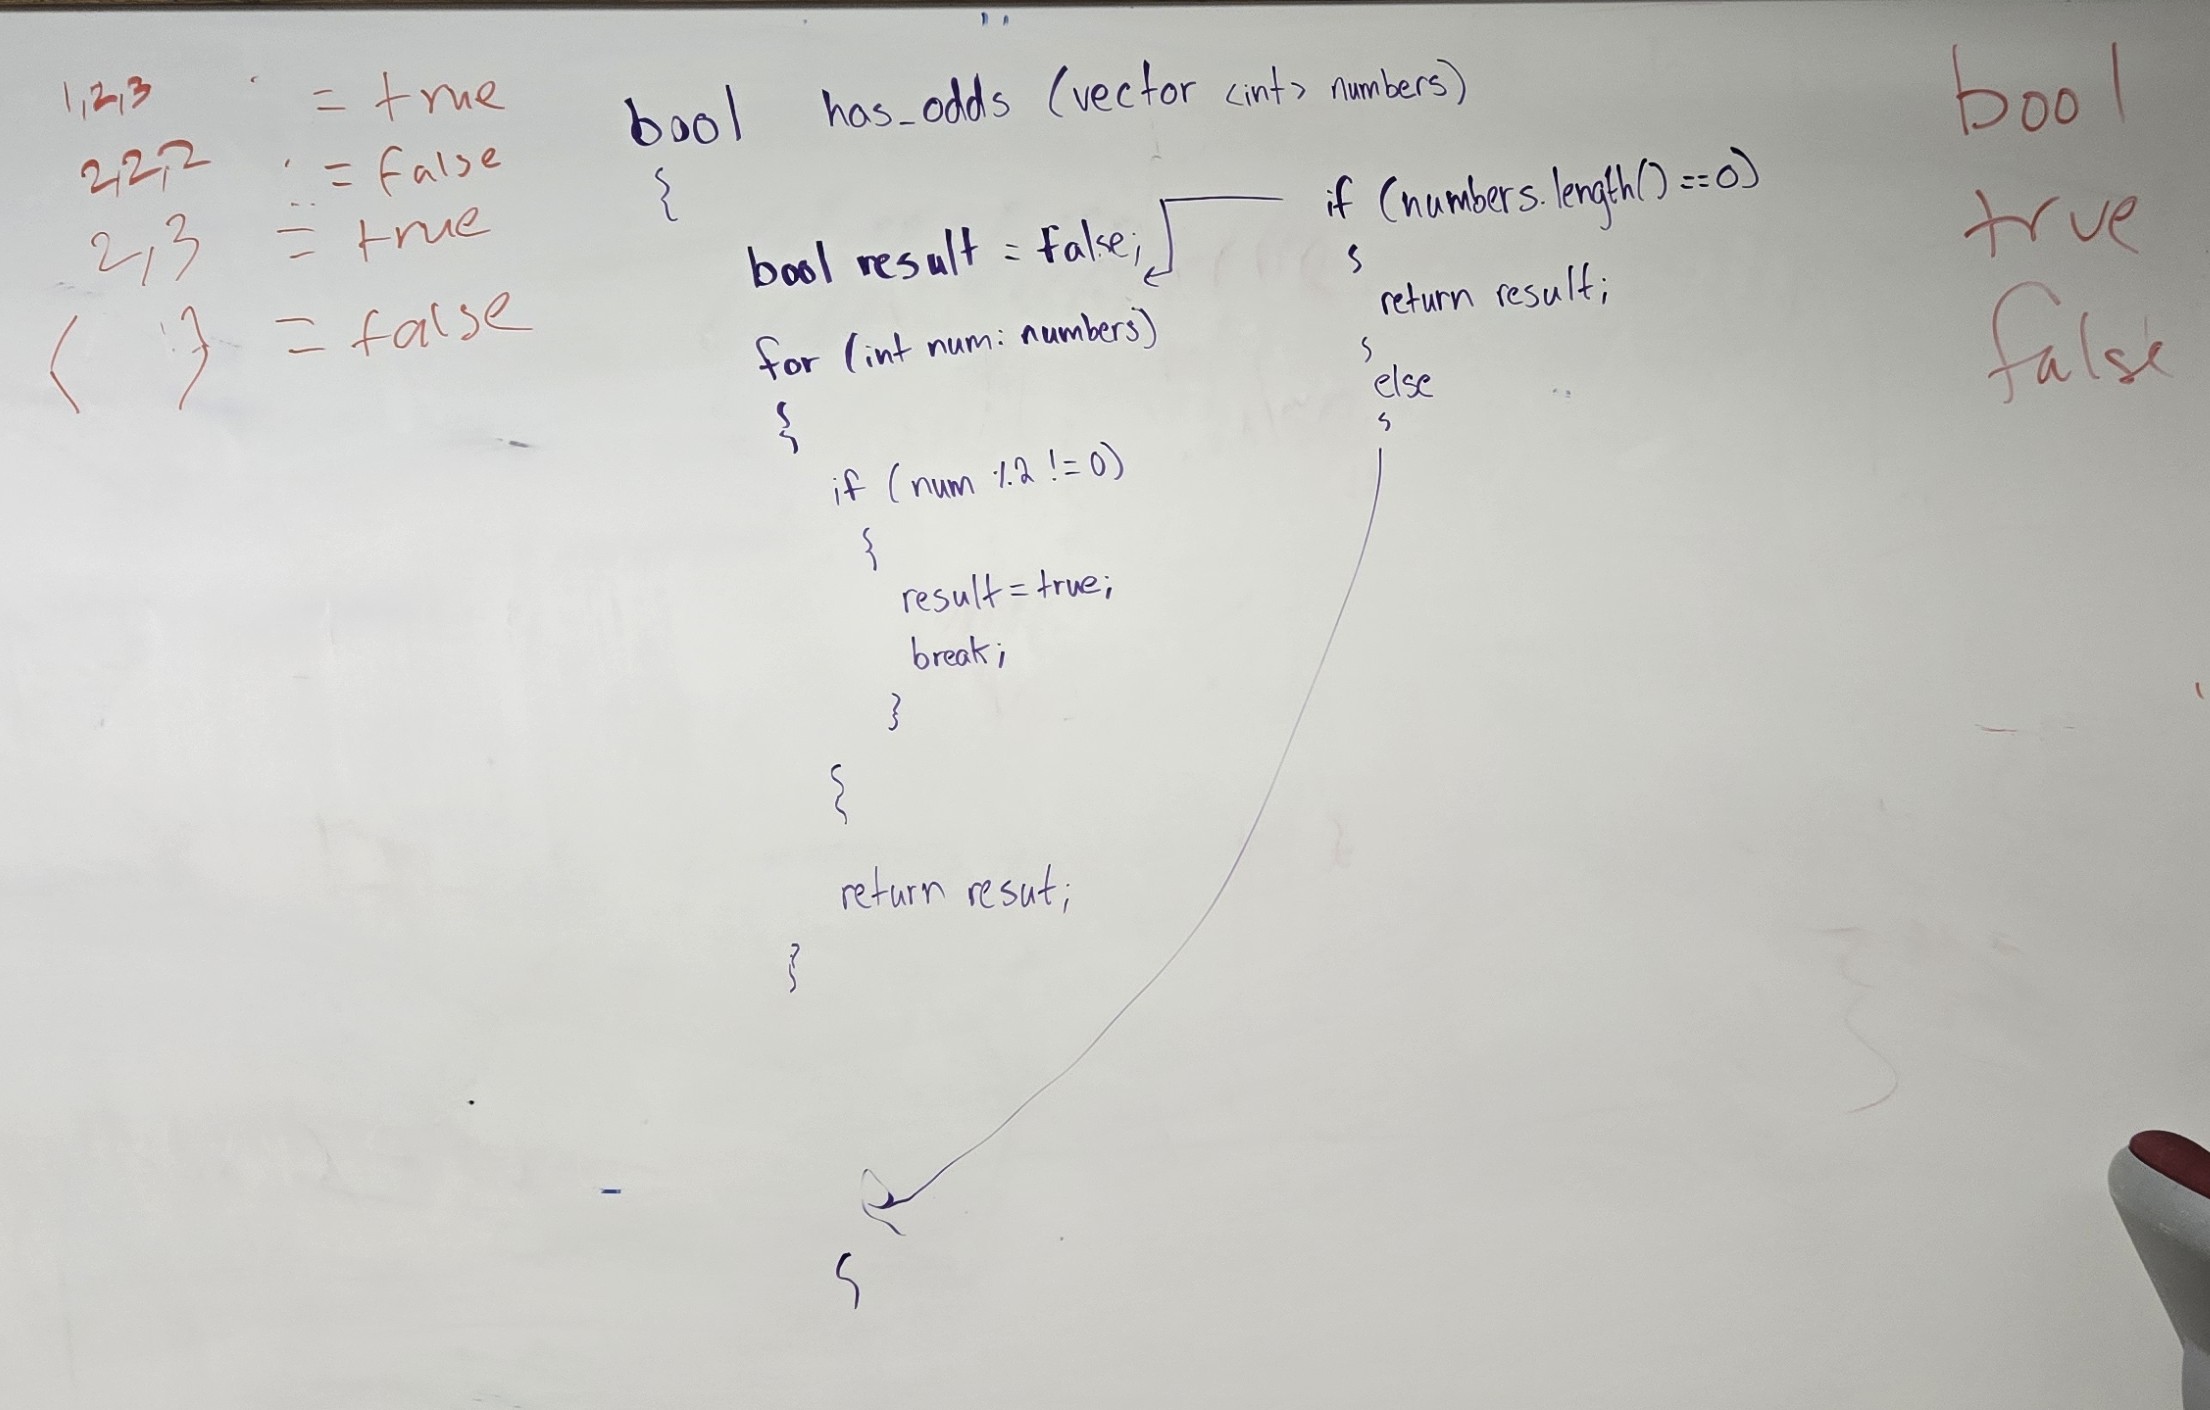 1,2,3 = true
2,2,2 = false
2,3 = true
{ } = false
bool has_odds (vector <int> numbers)
{
bool result = false;
for (int num: numbers)
{
if (num %2 != 0)
{
result = true;
break;
}
{
return resut;
}
if (numbers.length() == 0)
{
return result;
}
else
{
}
bool
true
false